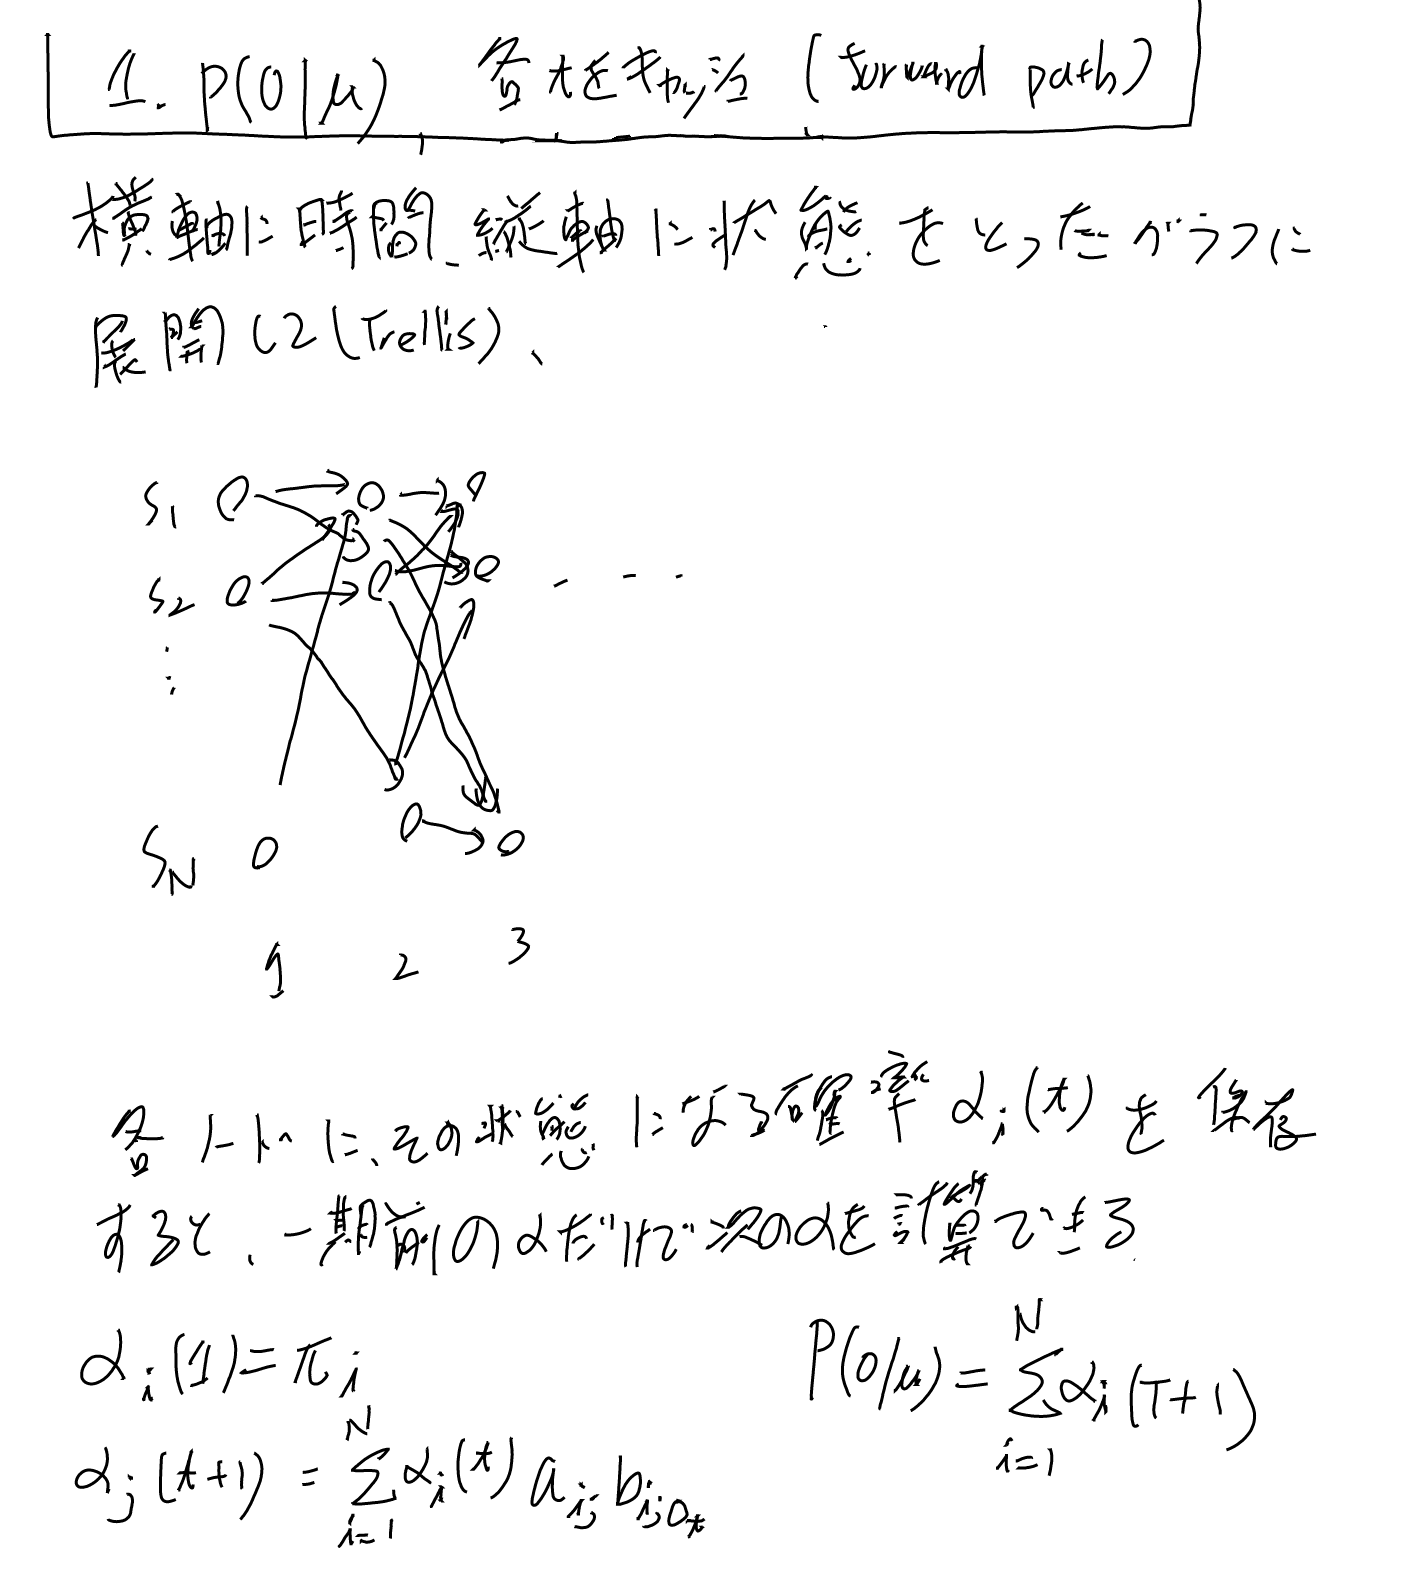 1. P(O|μ) 各tをキャッシュ (forward path)
横軸に時間、縦軸に状態をとったグラフに
展開して(Trellis)、
S1
S2
⋮
SN
. . .
1 2 3
各ノードに、その状態になる確率 αi(t) を保存
すると、一期前のαだけで次のαを計算できる.
αi(1)=πi
P(O|μ) = Σ_{i=1}^{N} αi(T+1)
αj(t+1) = Σ_{i=1}^{N} αi(t) aij bijOt